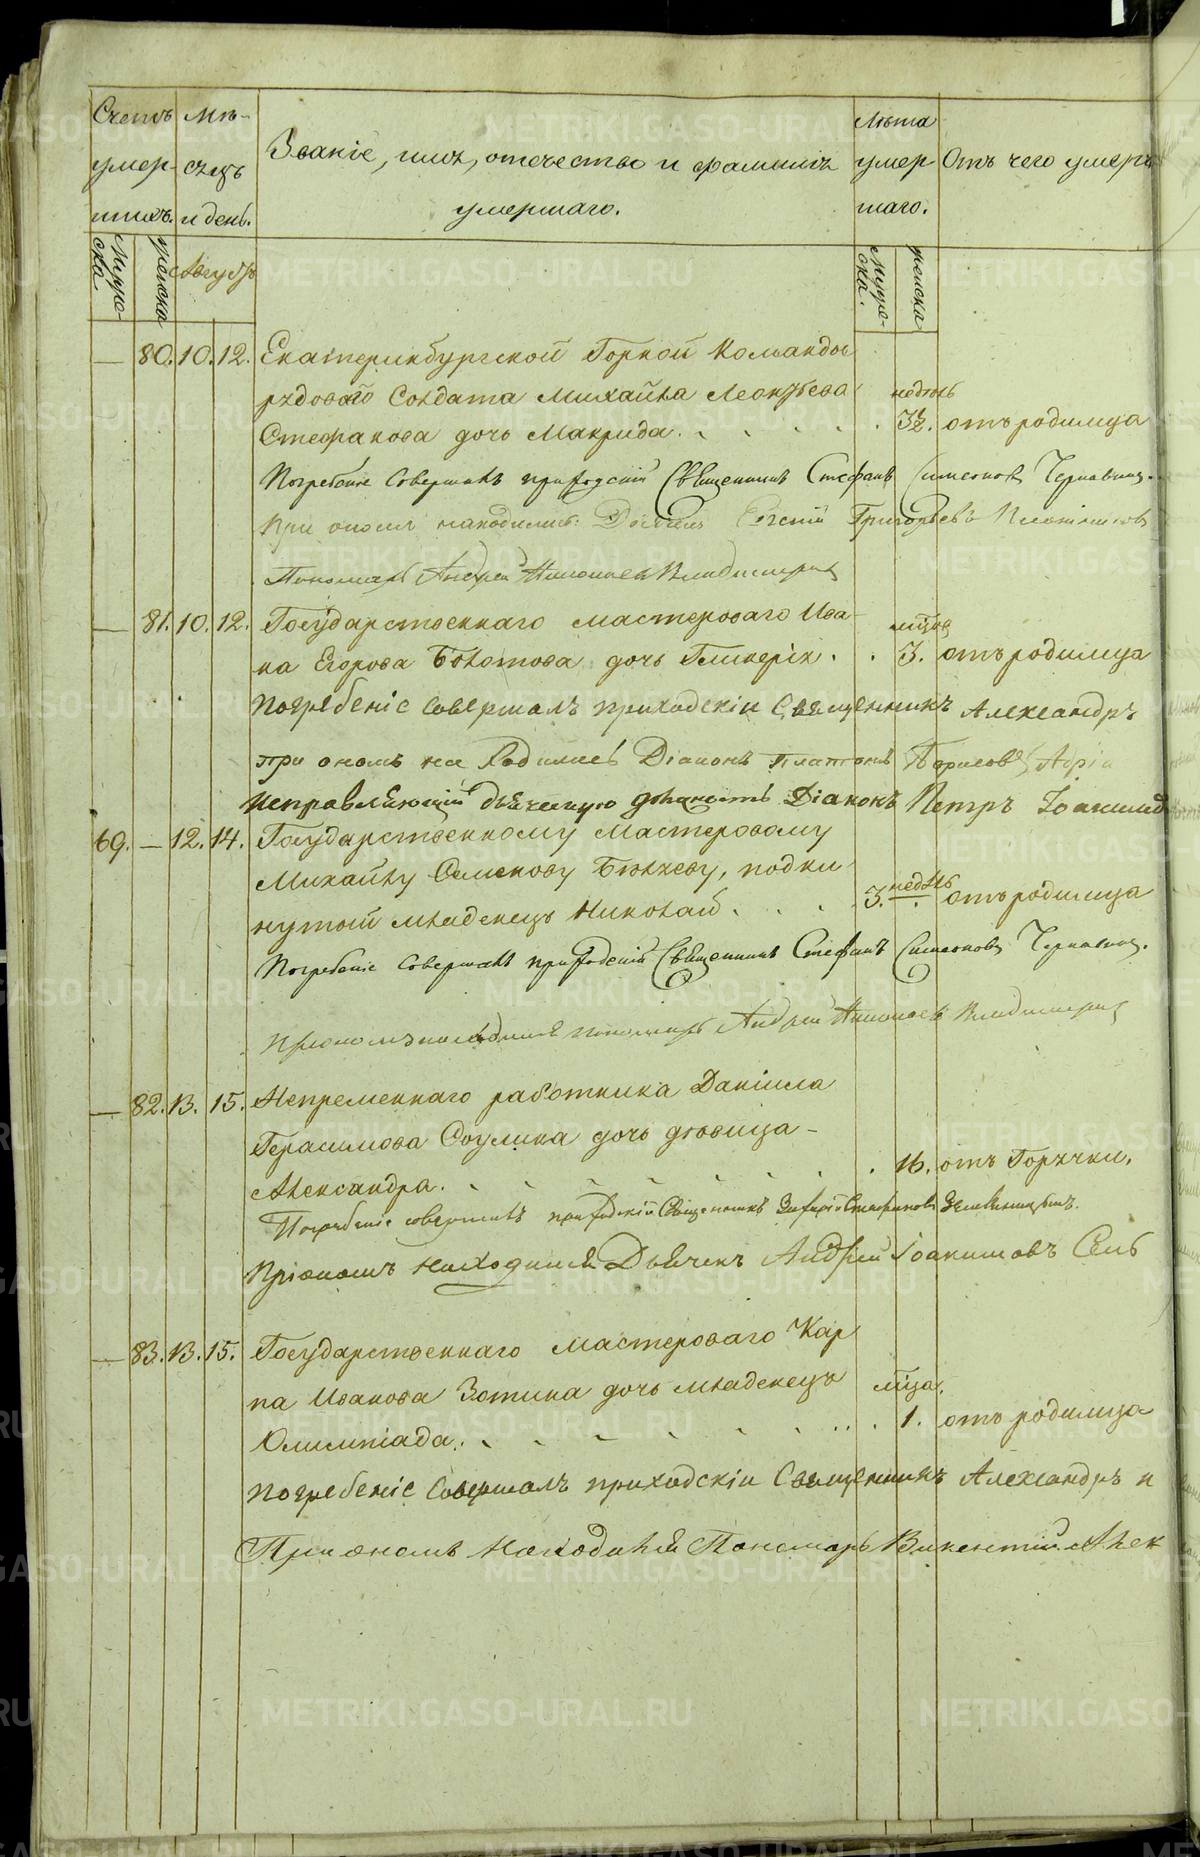 Счетъ умер-шихъ.
Мѣ-сяцъ и день.
Званіе, имя, отечество и фамилія умершаго.
Лѣта умер-шаго.
Отъ чего умеръ
Мужес-ка
женска
Августъ
Мужес-ка.
женска
— 80. 10. 12. Екатеринбургской Горной Команды
рядоваго Солдата Михайла Леонтьева недѣль
Стефанова дочь Макрида. 3½. отъ родимца
Погребеніе Совершалъ приходскій Священникъ Стефанъ Симеоновъ Чернавин.
При ономъ находились: Евгеній Григорьевъ Плотниковъ
Пономарь Андрей Николаевъ Владимиръ
— 81. 10. 12. Государственнаго мастероваго Ива- мѣцов
на Егорова Болотова дочь Гликерія. 3. отъ родимца
Погребеніе Совершалъ приходскіи Священникъ Александръ
при ономъ находились Діаконъ Платонъ Борисовъ
Исправляющій дьяческую должность Діаконъ Петръ Іоакимов
69. — 12. 14. Государственному Мастеровому
Михайлу Семенову Бѣляеву, подки- недѣль
нутый младенецъ Николай. 3. — отъ родимца
Погребеніе Совершалъ приходскій Священникъ Стефанъ Симеоновъ Чернавин.
При ономъ находился пономарь Андрей Николаевъ Владимиръ
— 82. 13. 15. Непременнаго работника Даніила
Герасимова Соулина дочь дѣвица
Александра. 16. отъ Горячки.
Погребеніе совершалъ приходскій Священникъ Стефановъ
При ономъ находился Дьячекъ Андрей Іоакимовъ Сель
— 83. 13. 15. Государственнаго мастероваго Кар
па Иванова Зотина дочь младенецъ мѣца.
Олимпіада. 1. отъ родимца
Погребеніе Совершалъ приходскіи Священникъ Александръ и
При ономъ Находился Пономарь Викентій Алек
METRIKI.GASO-URAL.RU